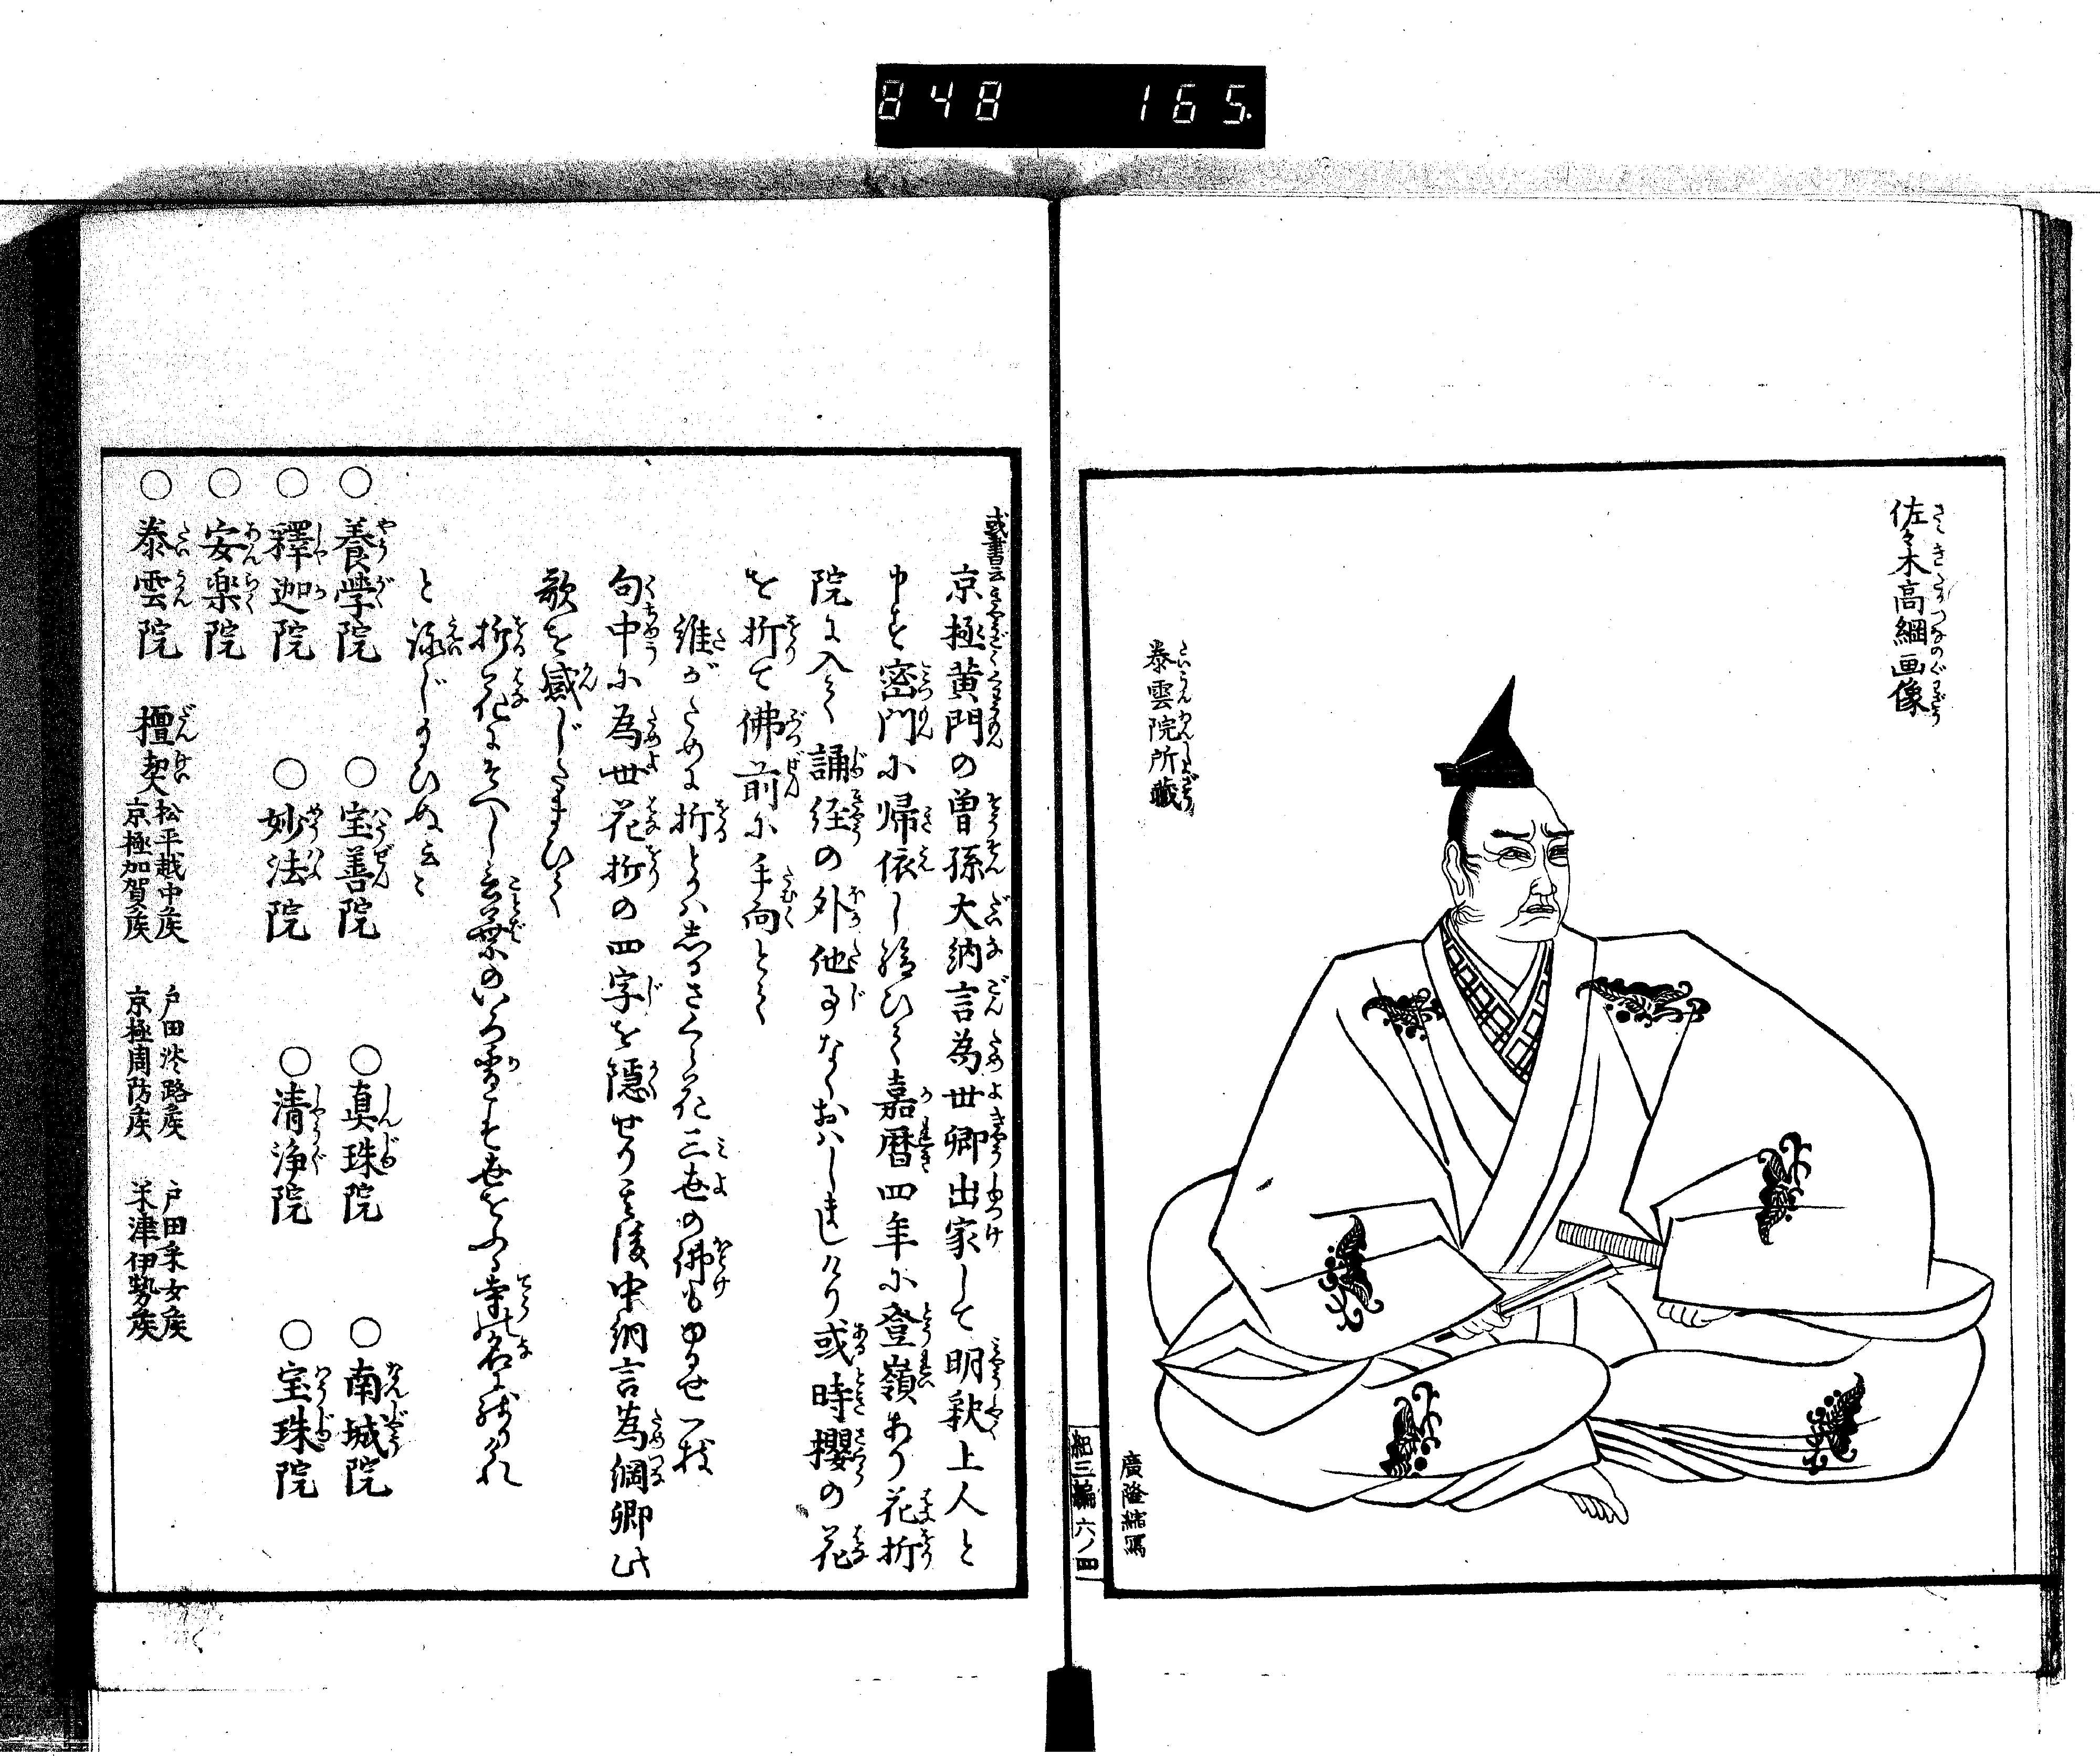 848 165
佐々木高綱画像
泰雲院所蔵
廣隆縮寫
三編 六ノ
或書云
京極黄門の曽孫大納言為世卿出家して明釈上人と
申す密門に帰依し給ひて嘉暦四年に登嶺あり花折
院に入て誦経の外他事なくおはしましけり或時櫻の花
を折て佛前に手向とて
誰がために折とかはしるさくら花三世の佛もゆるせ一枝
句中に為世花折の四字を隠せり其後中納言為綱卿此
歌を感じたまひて
折花にそへし言葉のいろ
と詠じ給ひぬと云々
○養学院 ○宝善院 ○真珠院 ○南城院
○釋迦院 ○妙法院 ○清浄院 ○宝珠院
○安楽院
○泰雲院 檀契 松平越中侯 戸田淡路侯 戸田采女侯
京極加賀侯 京極周防侯 米津伊勢侯